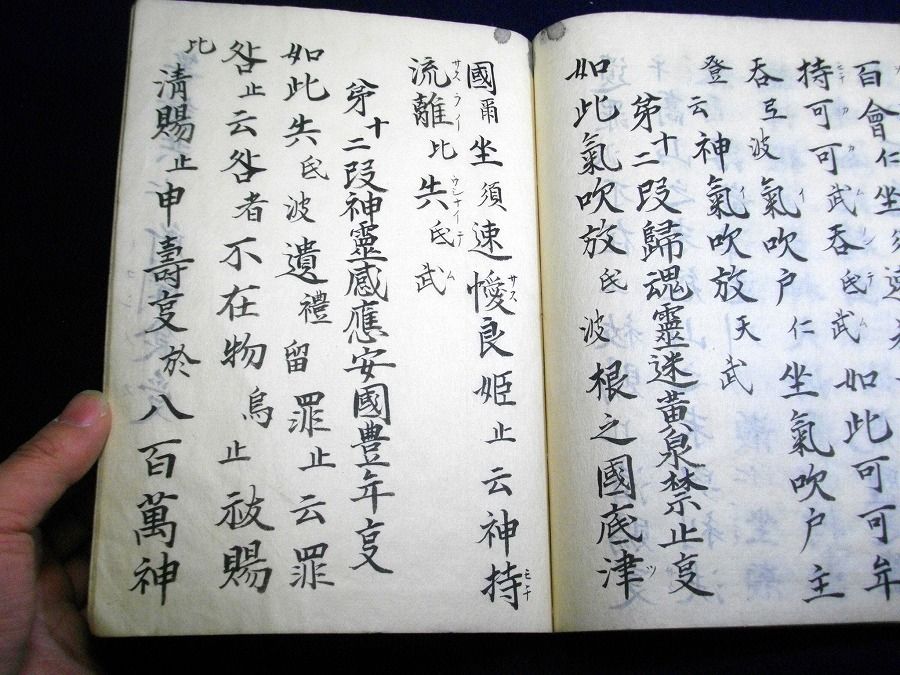 百會仁坐須速
持可可武吞氐武如此可可年
吞弖波氣吹戶仁坐氣吹戶主
登云神氣吹放天武
第十二段歸魂靈迷黃泉禁止㕝
如此氣吹放氐波根之國底津
國爾坐須速懓良姬止云神持
流離比失氐武
第十二段神靈感應安國豊年㕝
如此失氐波遺禮留罪止云罪
咎止云咎者不在物烏止祓賜
比淸賜止申壽㕝於八百萬神